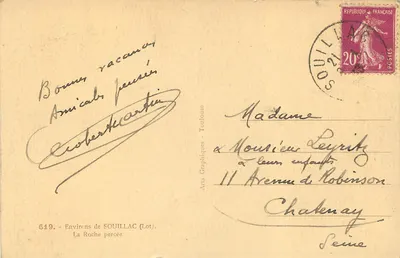 Bonnes vacances
Amicales pensées
Robert Martin
619. - Environs de SOUILLAC (Lot).
La Roche percée
Arts Graphiques - Toulouse
SOUILLAC
21
REPUBLIQUE FRANÇAISE
20c
POSTES
Madame
& Monsieur Leyritz
& leurs enfants
11 Avenue de Robinson
Chatenay
Seine